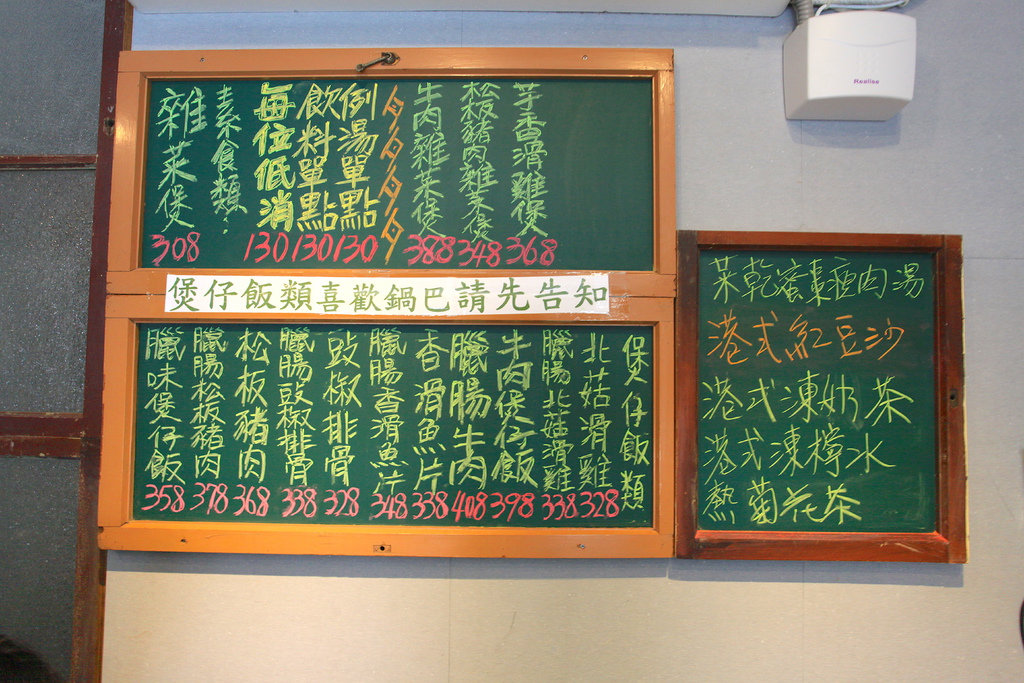 芋香滑雞煲 368
松板豬肉雜菜煲 348
牛肉雜菜煲 388
例湯單點 130
飲料單點 130
每位低消 130
素食類：
雜菜煲 308
煲仔飯類喜歡鍋巴請先告知
煲仔飯類
北菇滑雞 328
臘腸北菇滑雞 338
牛肉煲仔飯 398
臘腸牛肉 408
香滑魚片 338
臘腸香滑魚片 348
豉椒排骨 328
臘腸豉椒排骨 338
松板豬肉 368
臘腸松板豬肉 378
臘味煲仔飯 358
菜乾蜜棗瘦肉湯
港式紅豆沙
港式凍奶茶
港式凍檸水
熱菊花茶